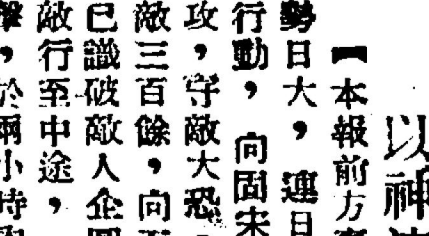 以神
【本報前方
勢日大，連日
行動，向固未
攻，守敵大恐，
敵三百餘，向
已識破敵人企圖
敵行至中途，
擊，於兩小時